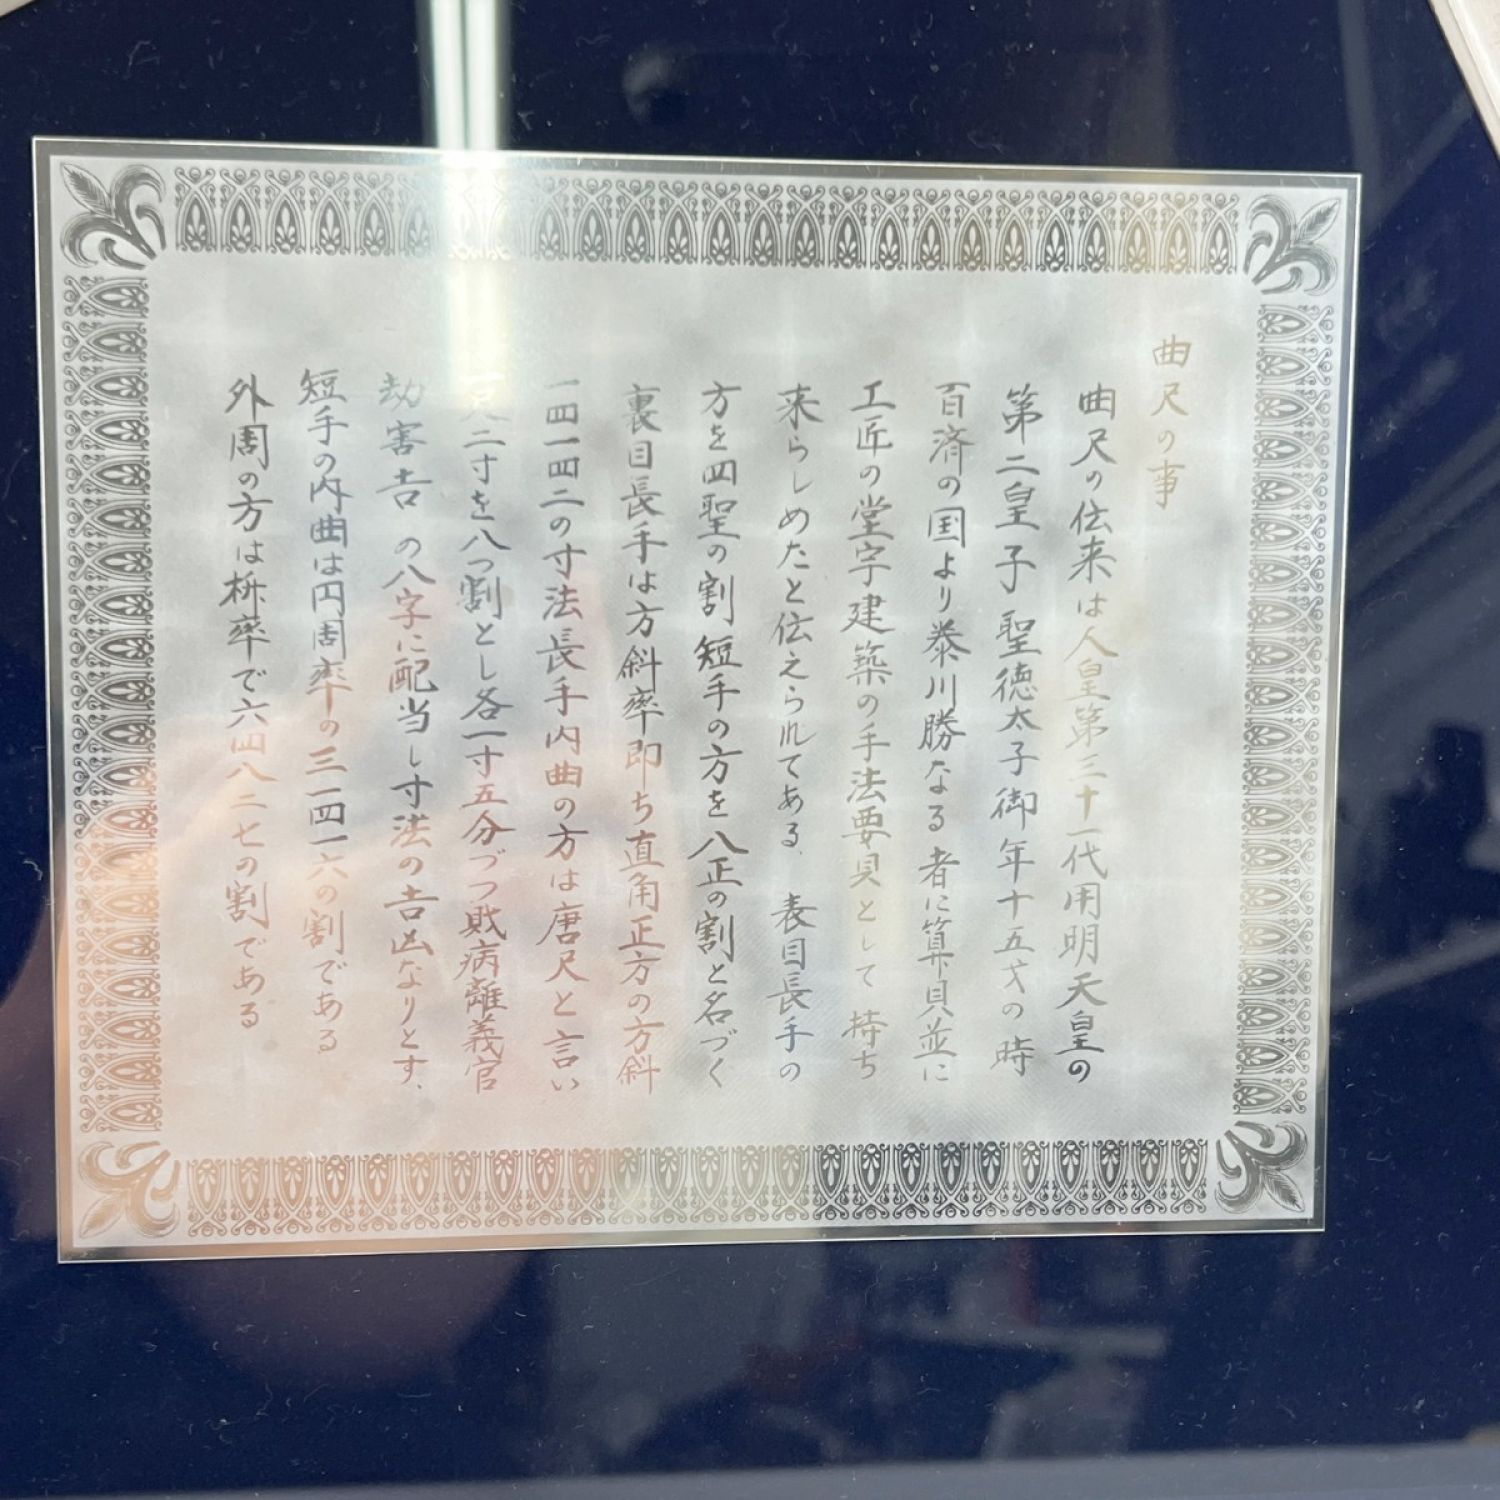 曲尺の事
曲尺の伝来は人皇第三十一代用明天皇の
第二皇子聖徳太子御年十五才の時
百済の国より泰川勝なる者に算具並に
工匠の堂宇建築の手法要具として持ち
来らしめたと伝えられてある、表目長手の
方を四聖の割短手の方を八正の割と名づく
裏目長手は方斜率即ち直角正方の方斜
一四一四二の寸法長手内曲の方は唐尺と言い
尺二寸を八つ割とし各一寸五分づつ財病離義官
劫害吉の八字に配当し寸法の吉凶なりとす、
短手の内曲は円周率の三一四一六の割である
外周の方は桝率で六四八二七の割である